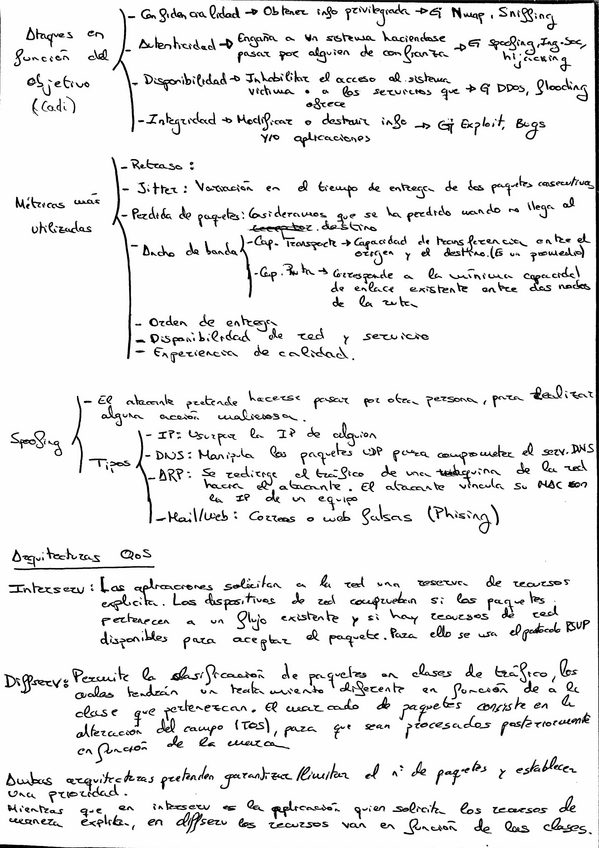 Ataques en función del objetivo (Cadi)
- Confidencialidad → Obtener info privilegiada → Ej Nmap, Sniffing
- Autenticidad → Engaña a un sistema haciendose
pasar por alguien de confianza → Ej spoofing, Ing-Soc,
hijacking
- Disponibilidad → Inhabilitar el acceso al sistema
victima o a los servicios que → Ej DDOS, flooding
ofrece
- Integridad → Modificar o destruir info → Ej Exploit, Bugs
y/o aplicaciones
Métricas más utilizadas
- Retraso:
- Jitter: Variación en el tiempo de entrega de dos paquetes consecutivos
- Perdida de paquetes: Consideramos que se ha perdido cuando no llega al
destino
- Ancho de banda
- Cap. Transporte → Capacidad de transferencia entre el
origen y el destino. (Es un promedio)
- Cap. Ruta → Corresponde a la mínima capacidad
de enlace existente entre dos nodos
de la ruta
- Orden de entrega
- Disponibilidad de red y servicio
- Experiencia de calidad.
Spoofing
- El atacante pretende hacerse pasar por otra persona, para realizar
alguna acción maliciosa.
Tipos
- IP: Usurpar la IP de alguien
- DNS: Manipula los paquetes UDP para comprometer el serv. DNS
- ARP: Se redirige el tráfico de una maquina de la red
hacia el atacante. El atacante vincula su MAC con
la IP de un equipo
- Mail/Web: Correos o web falsas (Phising)
Arquitecturas QoS
Interserv: Las aplicaciones solicitan a la red una reserva de recursos
explicita. Los dispositivos de red comprueban si los paquetes
pertenecen a un flujo existente y si hay recursos de red
disponibles para aceptar el paquete. Para ello se usa el protocolo RSUP
Diffserv: Permite la clasificación de paquetes en clases de tráfico, los
cuales tendrán un tratamiento diferente en función de a la
clase que pertenezcan. El marcado de paquetes consiste en la
alteración del campo (TOS), para que sean procesados posteriormente
en función de la marca
Ambas arquitecturas pretenden garantizar/limitar el nº de paquetes y establecer
una prioridad.
Mientras que en interserv es la aplicación quien solicita los recursos de
manera explicita, en diffserv los recursos van en función de las clases.